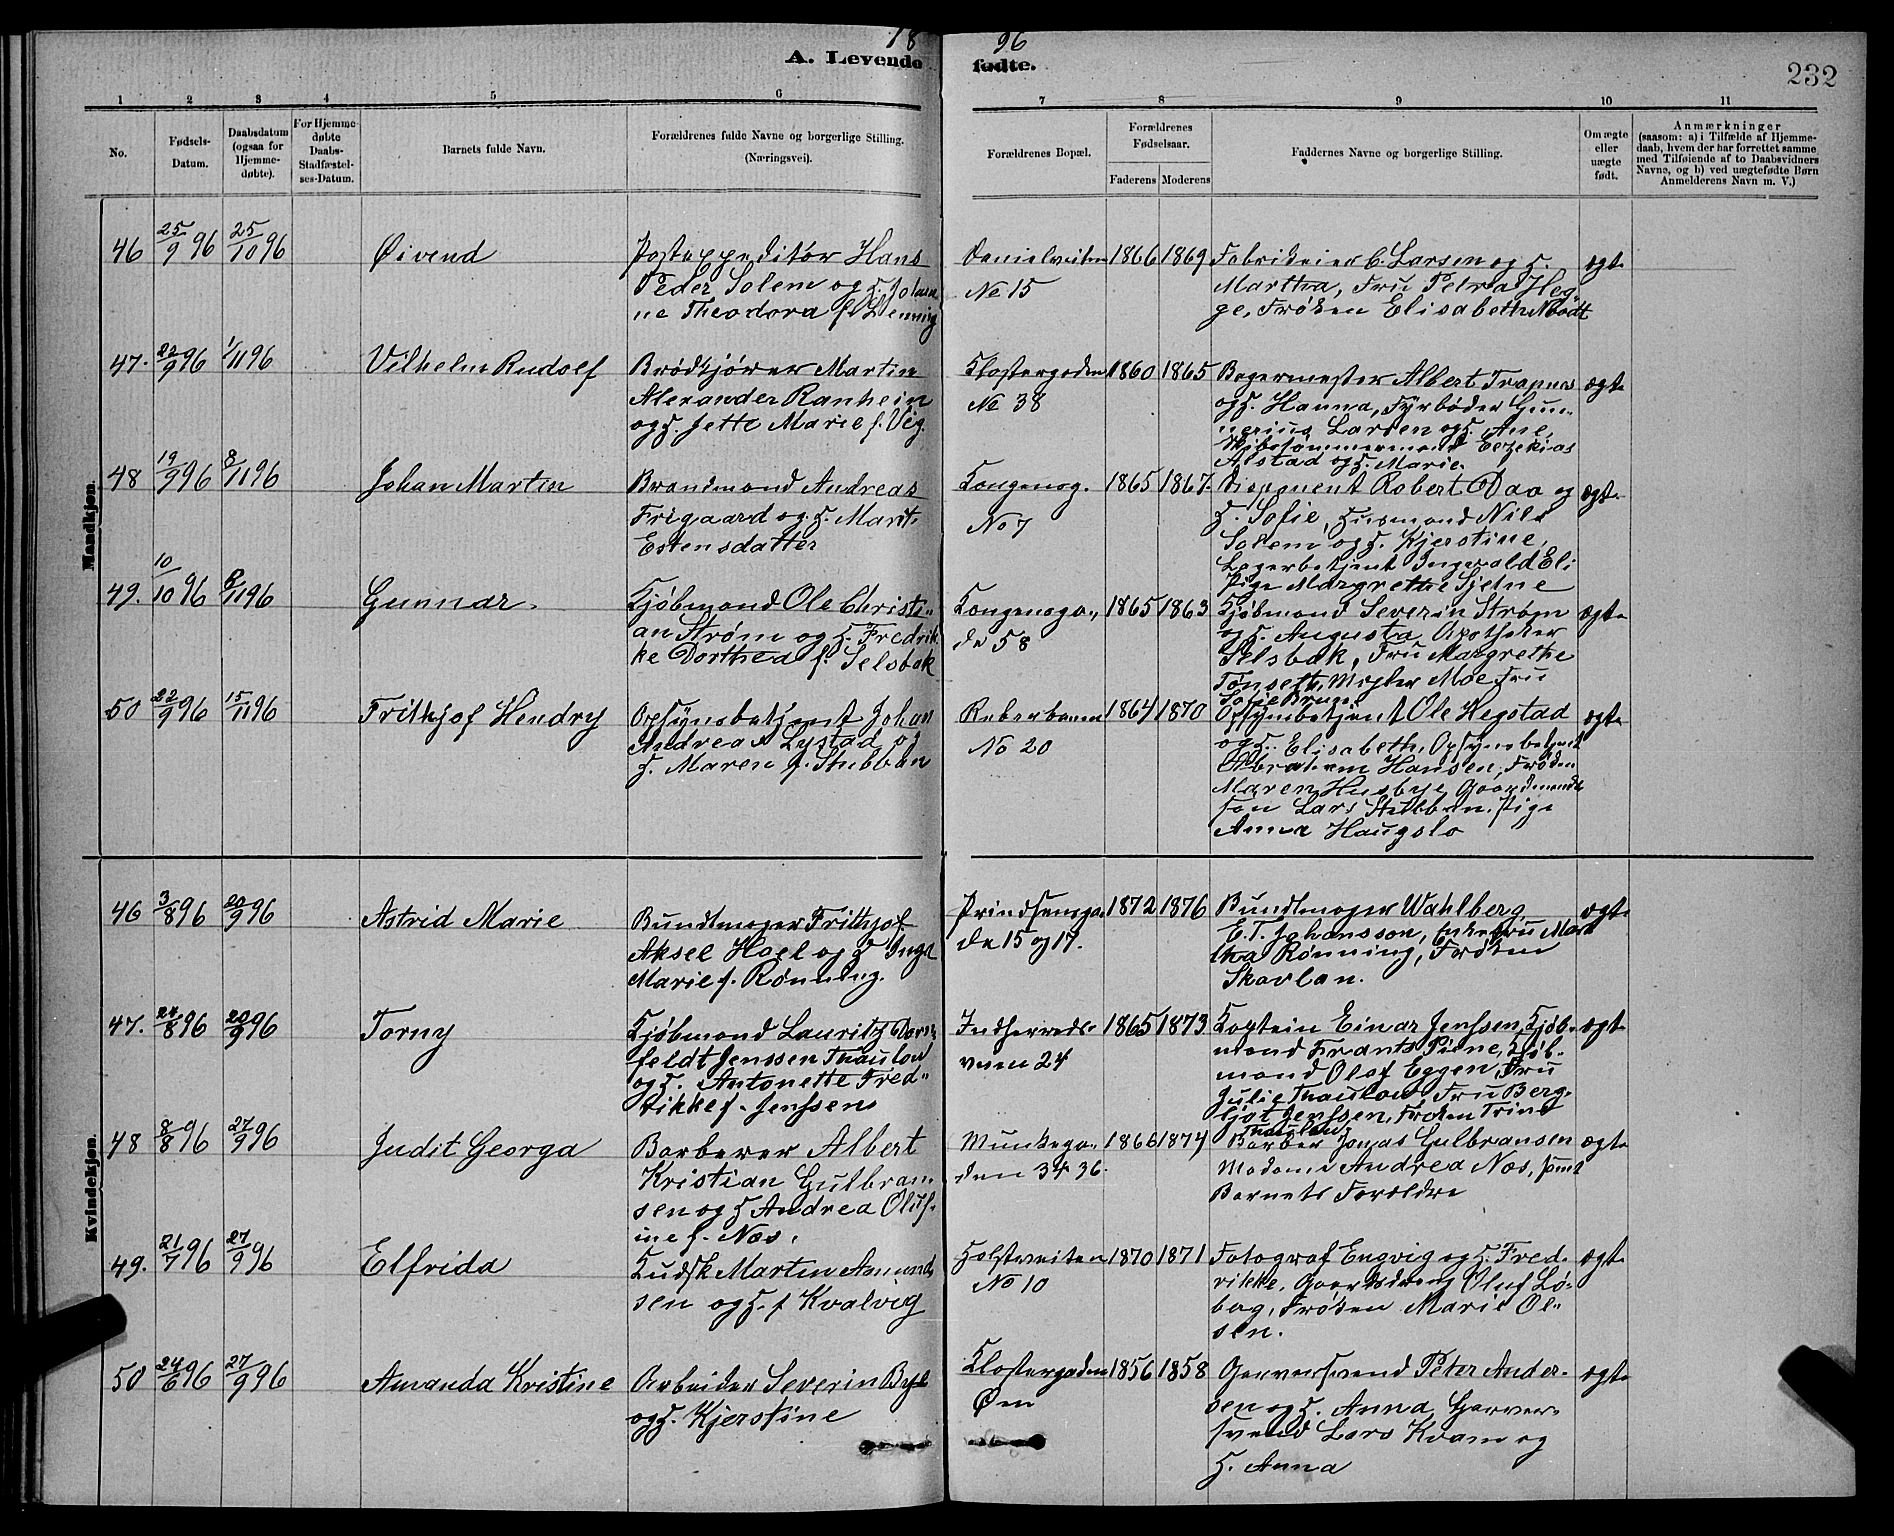 18 96
A. Levende fødte.
232
1 2 3 4 5 6 7 8 9 10 11
No.
Fødsels-
Datum.
Daabsdatum
(ogsaa for
Hjemme-
døbte).
For Hjemme-
døbte
Daabs-
Stadfæstel-
ses-Datum.
Barnets fulde Navn.
Forældrenes fulde Navne og borgerlige Stilling.
(Næringsvei).
Forældrenes Bopæl.
Forældrenes
Fødselsaar.
Faderens Moderens
Faddernes Navne og borgerlige Stilling.
Om ægte
eller
uægte
født.
Anmærkninger
(saasom: a) i Tilfælde af Hjemme-
daab, hvem der har forrettet samme
med Tilføiende af to Daabsvidners
Navne, og b) ved uægtefødte Børn
Anmelderens Navn m. V.)
Mandkjøn.
46 25/9 96 25/10 96 Øivend
Postexpeditør Hans
Peder Solem og H. Johan
ne Theodora f. Lenning
Danielveiten
No 15
1866 1869
Fabrikeier C. Larsen og H.
Martha, Fru Petra Heg
ge, Frøken Elisabeth
ægte
47. 22/9 96 1/11 96 Vilhelm Rudolf
Brødkjører Martin
Alexander Ranheim
og H. Jette Marie f. Vig.
Klostergaden
No 38
1860 1865
Bagermester Albert Trapnes
og H. Hanna, Fyrbøder Gun-
nerius Larsen og H. Ane,
Skibstømmermand Eezekias
Alstad og H. Marie.
ægte
48 19/9 96 8/11 96 Johan Martin
Brandmand Andreas
Frigaard og H. Marit
Estensdatter
Kongensg.
No 7
1865 1867
Disponent Robert Daa og
H. Sofie, Husmand Nils
Solem og H. Kjerstine,
Lagerbetjent Ingvald Eli
Pige Margrethe Sjetne
ægte
49. 10/10 96 8/11 96 Gunnar.
Kjøbmand Ole Christi-
an Strøm og H. Fredrik
ke Dorthea f. Selsbak
Kongensga-
de 58
1865 1863
Kjøbmand Severin Strøm
og H. Augusta, Apotheker
Selsbak, Fru Margrethe
Tønseth, Mægler Moe, Fru
Sofie Bruge
ægte
50 22/9 96 15/11 96 Frithjof Hendry
Opsynsbetjent Johan
Andreas Lystad og
H. Maren f. Stubban
Reberbanen
No 20
1864 1870
Opsynbetjent Ole Hegstad
og H. Elisabeth, Opsynsbetjent
Abraham Hansen, Frøken
Maren Husbye, Gaardmands
søn Lars Stubban, Pige
Anna Haugslo
ægte
Kvindekjøn.
46 3/8 96 20/9 96 Astrid Marie
Bundtmager Frithjof
Aksel Hoel og H Inga
Marie f. Rønning.
Prindsensga
de 15 og 17.
1872 1876
Bundtmager Wahlberg
E. T. Johansson, Enkefru Mar
tha Rønning, Frøken
Skavlan.
ægte
47. 24/8 96 20/9 96 Torny
Kjøbmand Lauritz Dors
feldt Jenssen Thaulow
og H. Antonette Fred-
rikke f. Jenssen
Indherreds-
veien 24
1865 1873
Kaptein Einar Jenssen, Kjøb-
mand Frants Piene, Kjøb-
mand Olaf Eggen, Fru
Julie Thaulow, Fru Berg-
ljot Jenssen, Frøken Trine
Thaulow
ægte
48 8/8 96 27/9 96 Judit Georga
Barberer Albert
Kristian Gulbran-
sen og H Andrea Oluf-
ine f. Næs.
Munkega-
den 34 36.
1866 1874
Barber Jonas Gulbransen
Madame Andrea Næs, samt
Barnets Forældre
ægte
49. 21/7 96 27/9 96 Elfrida
Kudsk Martin Asmund
sen og H. f Kvalvig
Holstveiten
No 10
1870 1871
Fotograf Engvig og H. Fred-
rikke, Gaardsdreng Oluf Lø-
bag, Frøken Marie Ol-
sen.
ægte
50 24/6 96 27/9 96 Amanda Kristine
Arbeider Severin Bye
og H. Kjerstine
Klostergaden
Øen
1856 1858
Garversvend Peter Ander-
sen og H. Anna, Garver-
svend Lars Kvam og
H. Anna
ægte